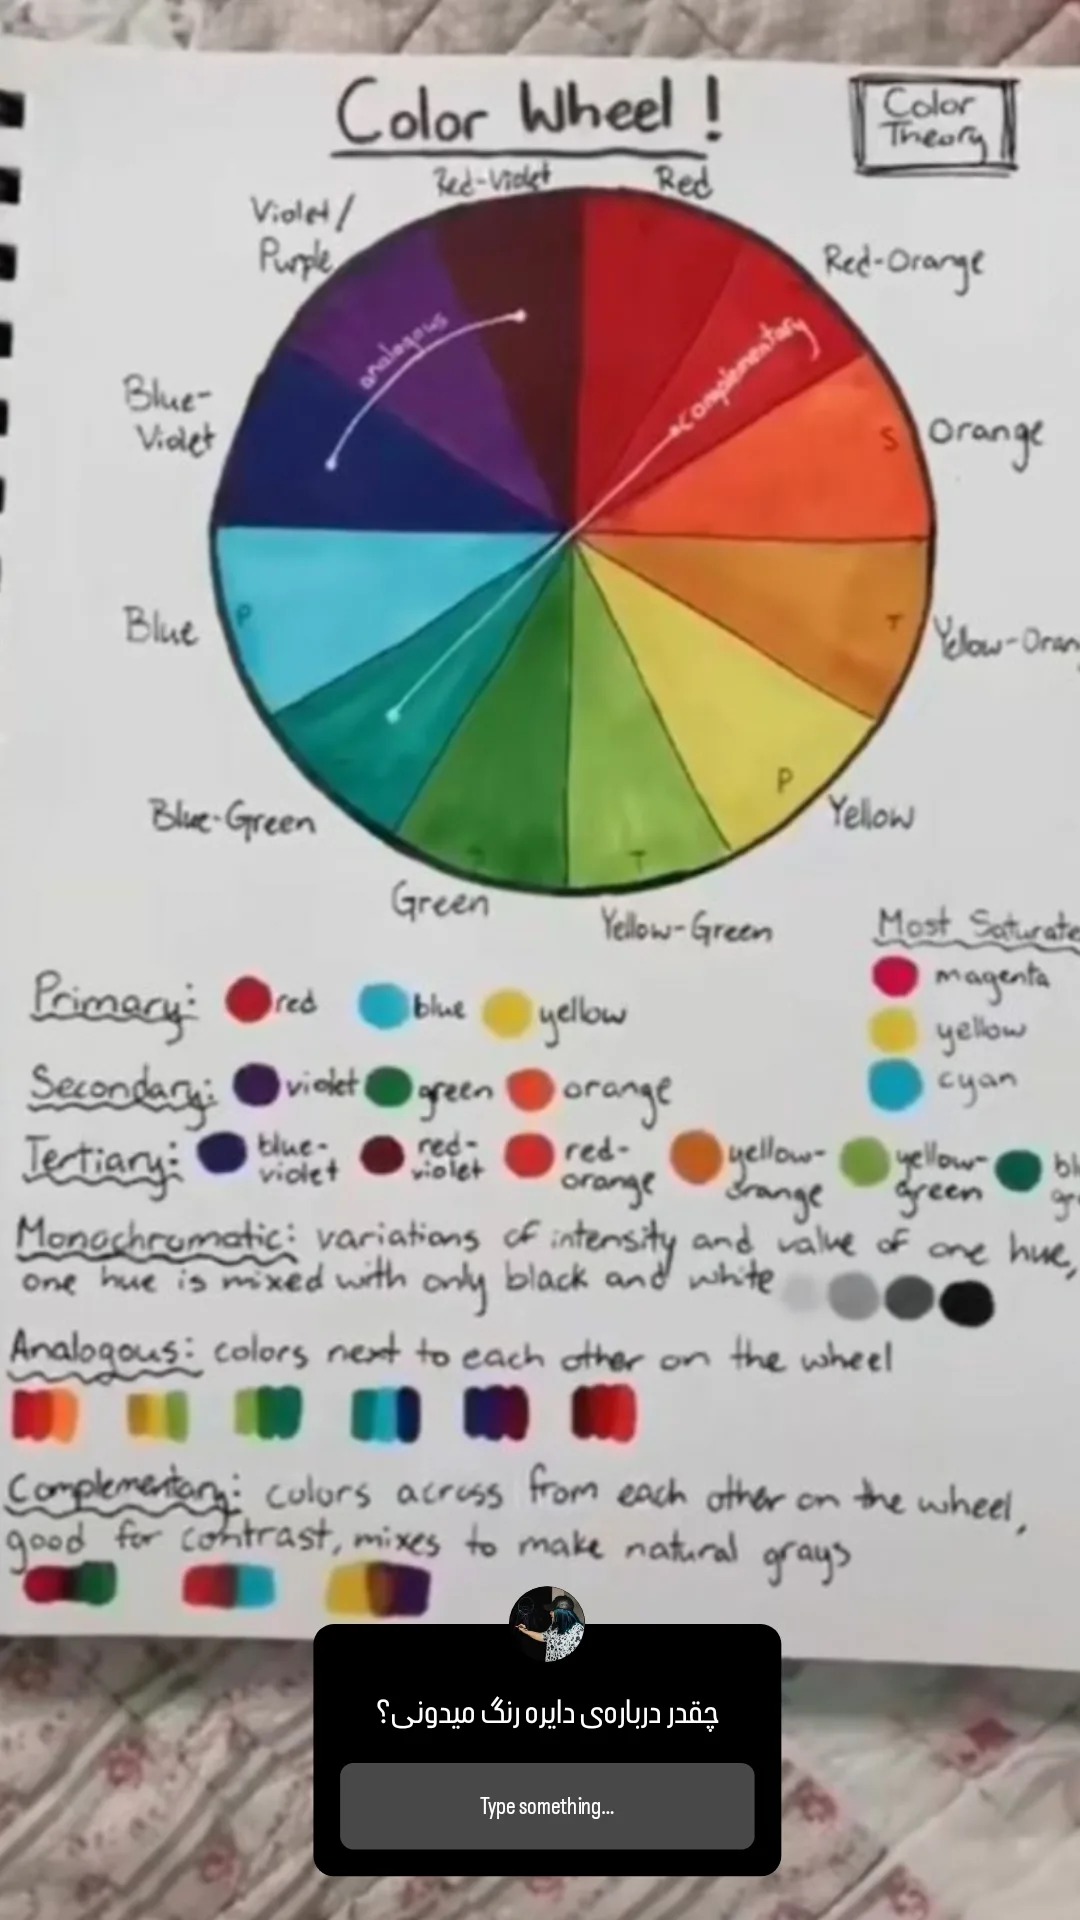 Color Wheel !
Color
Theory
Red-Violet
Red
Violet/
Purple
Red-Orange
analogous
complementary
Blue-
Violet
S
Orange
P
Blue
T
Yellow-Oran
P
Yellow
Blue-Green
T
Green
Yellow-Green
Most Saturate
magenta
yellow
cyan
Primary: red blue yellow
Secondary: violet green orange
Tertiary: blue-violet red-violet red-orange yellow-orange yellow-green bl gr
Monochromatic: variations of intensity and value of one hue,
one hue is mixed with only black and white
Analogous: colors next to each other on the wheel
Complementary: colors across from each other on the wheel,
good for contrast, mixes to make natural grays
چقدر درباره‌ی دایره رنگ میدونی؟
Type something...